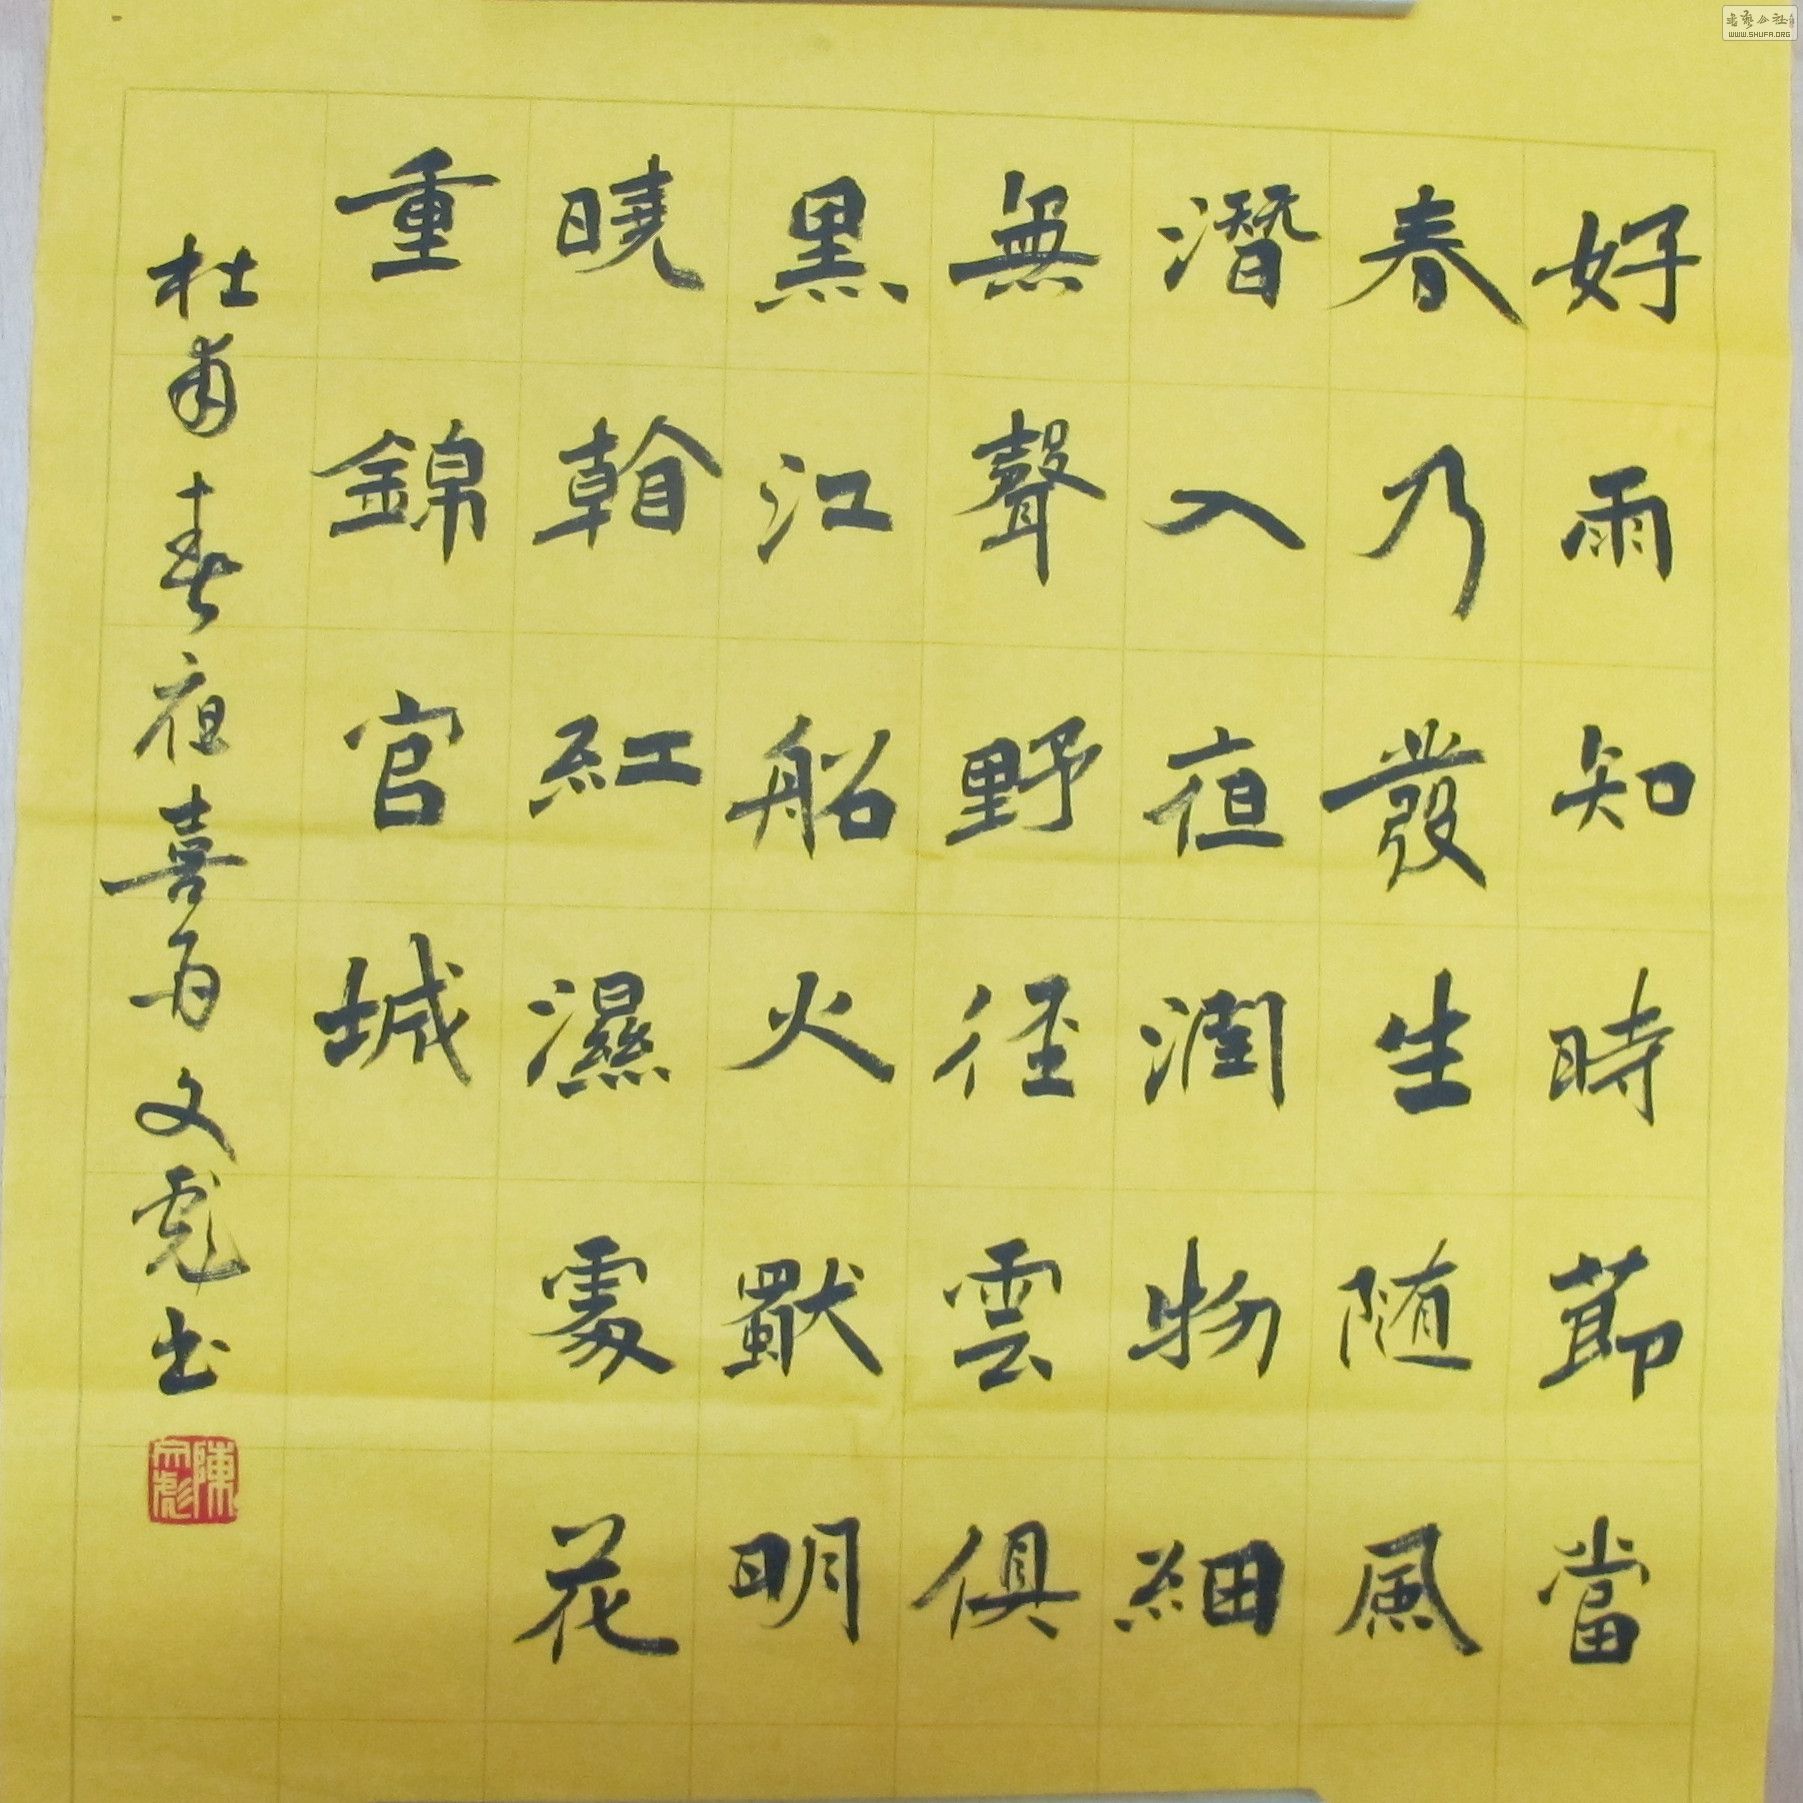 好雨知時節當
春乃發生随風
潛入夜潤物細
無聲野径雲俱
黑江船火獨明
曉看紅濕處花
重錦官城
杜甫春夜喜雨文彪书
陳文彪
WWW.SHUFA.ORG